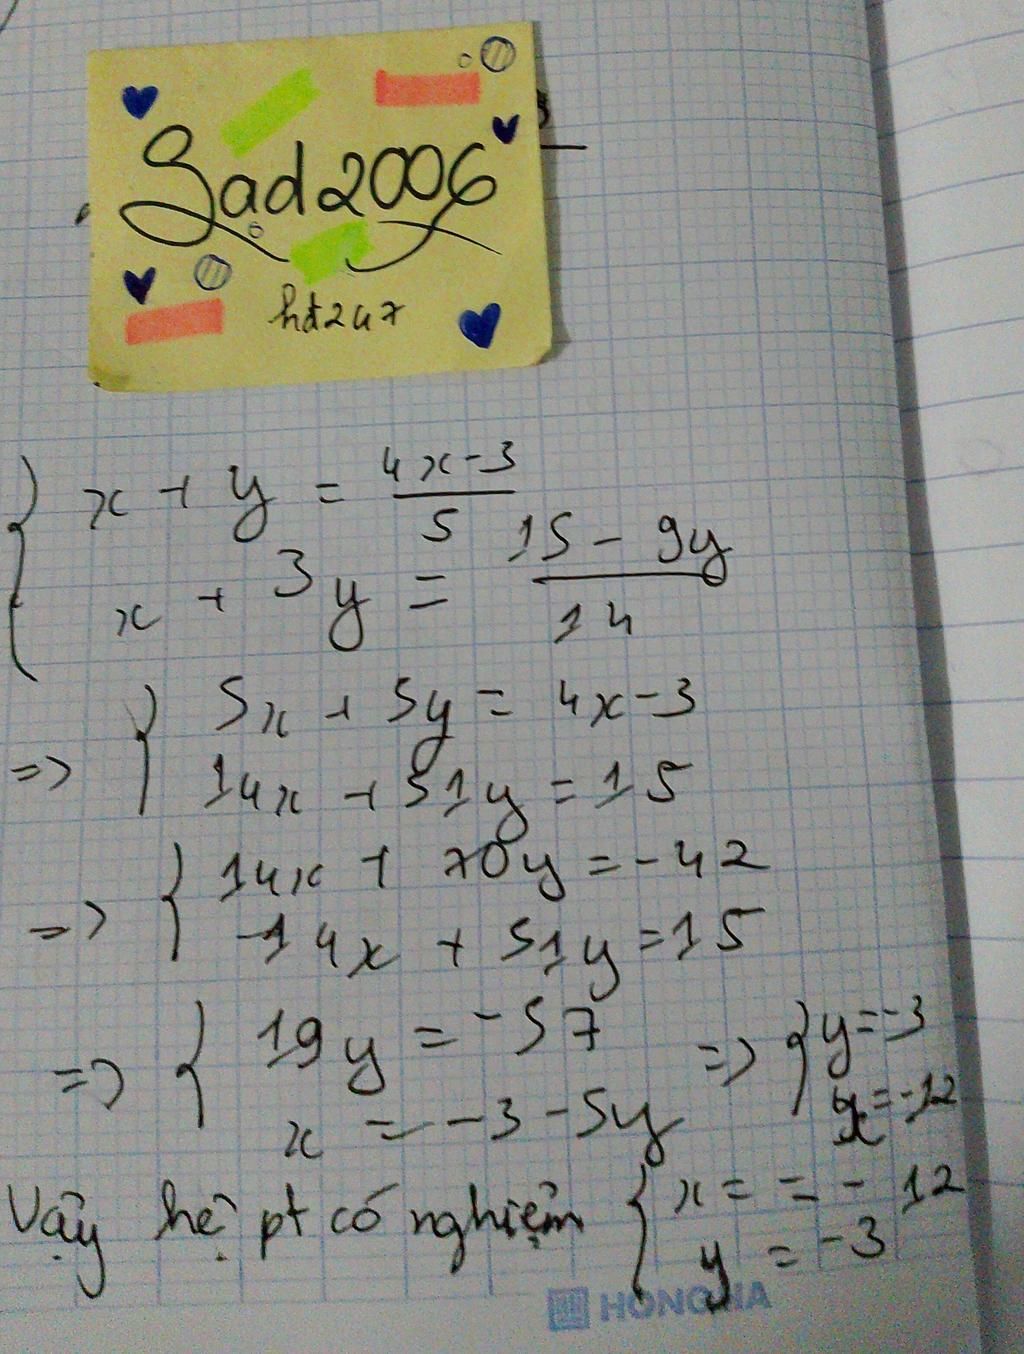 Sad2006
hd247
x + y = 4x-3 / 5
x + 3y = 15 - 9y / 14
=> { 5x + 5y = 4x-3
14x + 51y = 15
=> { 14x + 70y = -42
-14x + 51y = 15
=> { 19y = -57 => { y = -3
x = -3 - 5y x = -12
Vậy hệ pt có nghiệm { x = = - 12
y = -3
HONG HA